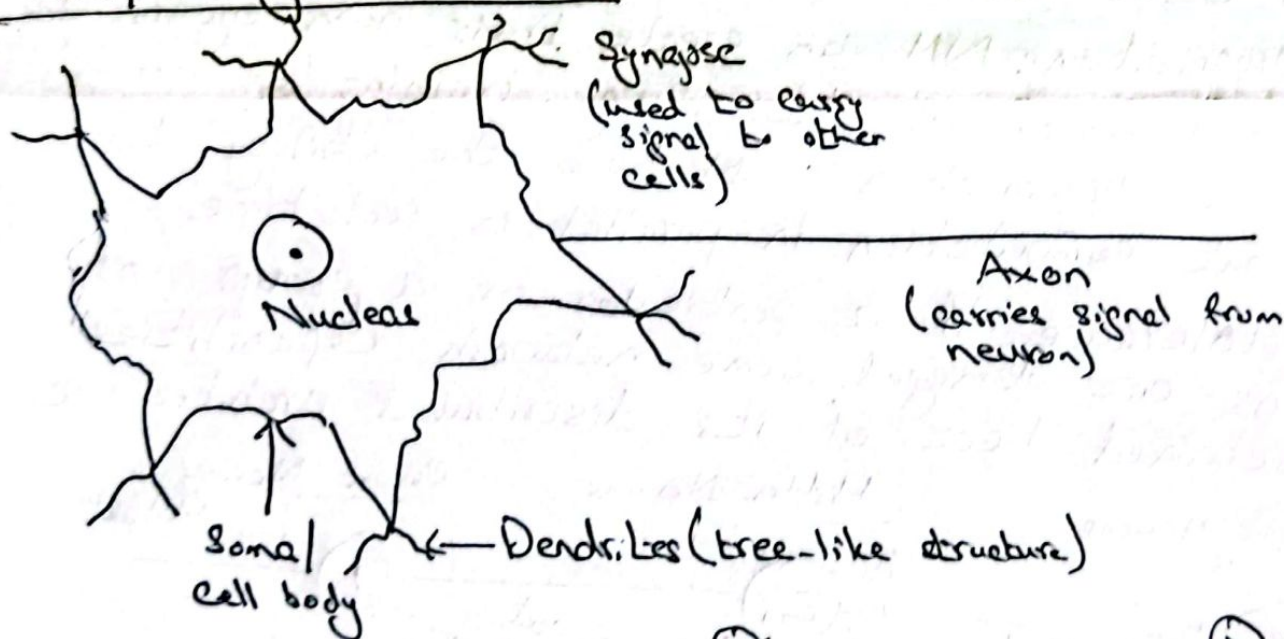 Synapse
(used to carry
signal to other
cells)
Axon
(carries signal from
neuron)
Nucleas
Soma/
cell body
Dendrites (tree-like structure)